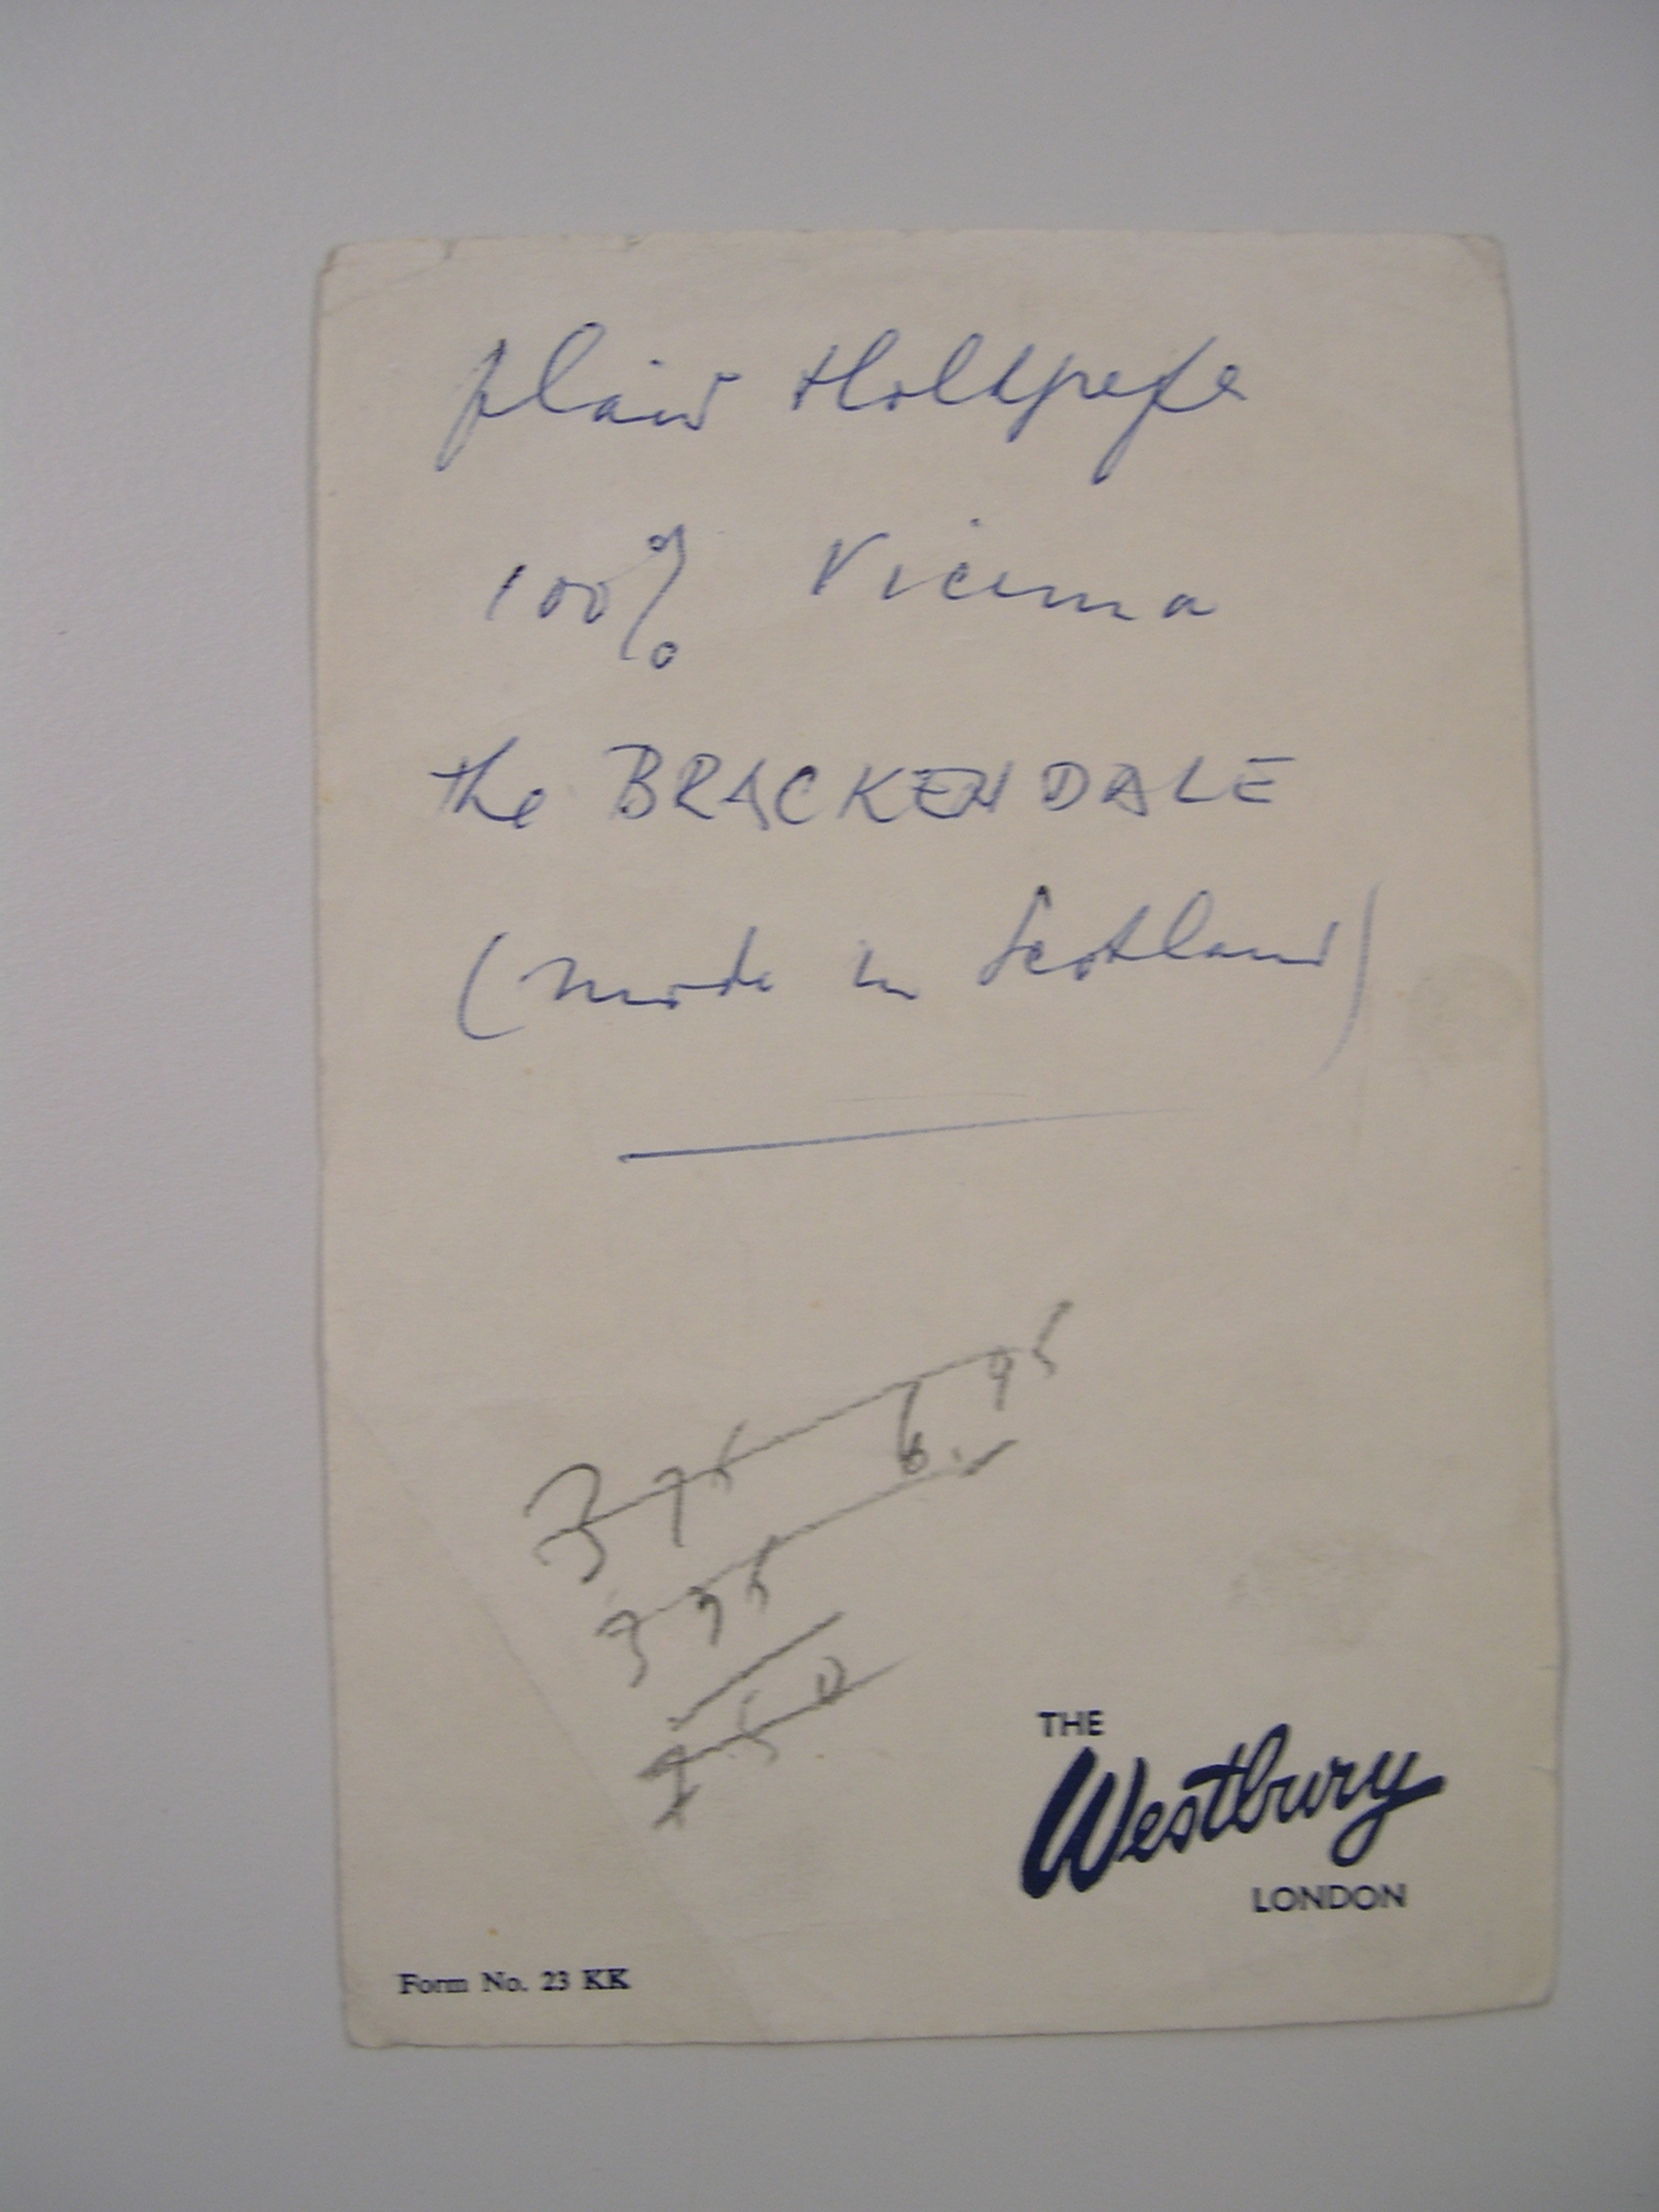 plaid
100% Vicuna
the BRACKENDALE
(made in Scotland)
3 75 6 95
3 75
7 50
THE
Westbury
LONDON
Form No. 23 KK